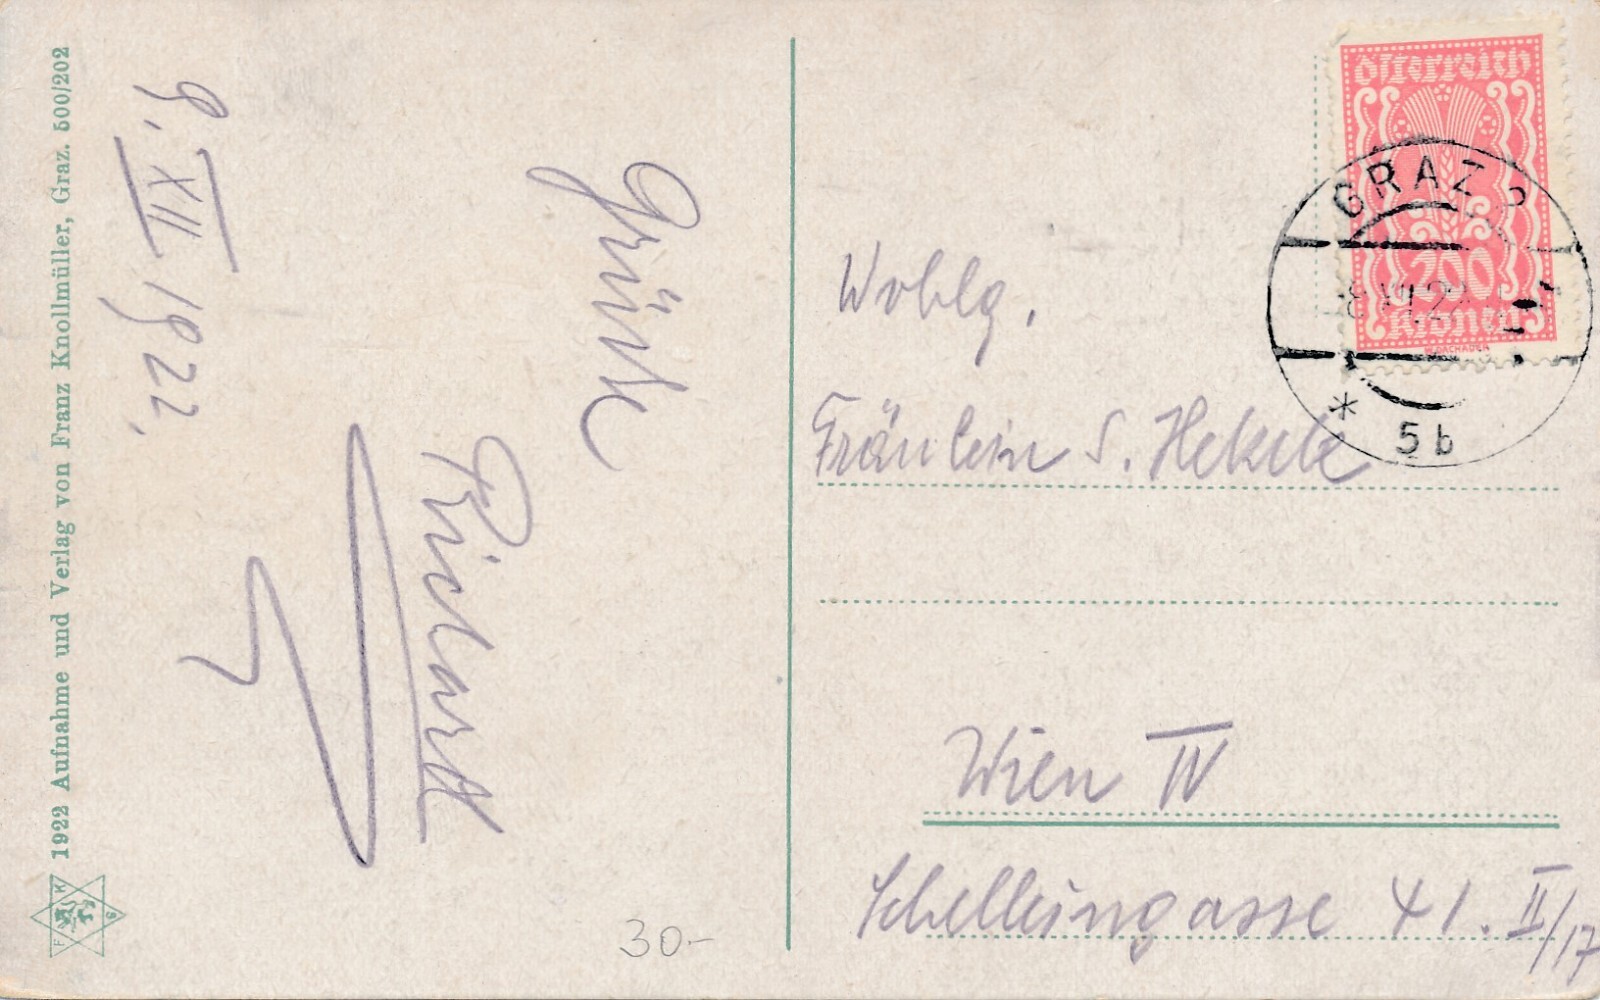 1922 Aufnahme und Verlag von Franz Knollmüller, Graz. 500/202
F K G
9. XII 1922.
Grüße
Richard
30.-
Österreich
200
Kronen
GRAZ
5b
Wohlg.
Fräulein S. Hekele
Wien IV
Schelleingasse 41. II/17